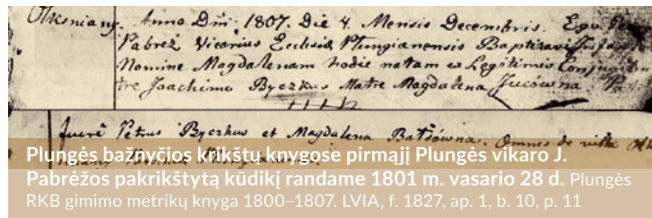 Olksniany. Anno Dni: 1807. Die 4. Mensis Decembris. Ego
Pabreż Vicarius Ecclesiæ Plungianensis Baptizavi
Nomine Magdalenam hodie natam ex Legitimis Conjugibus
tre Joachimo Byczkus Matre Magdalena Jucówna
Petrus Byczkus et Magdalena Omnes de villa
Plungės bažnyčios krikštų knygose pirmąjį Plungės vikaro J.
Pabrėžos pakrikštytą kūdikį randame 1801 m. vasario 28 d. Plungės
RKB gimimo metrikų knyga 1800–1807. LVIA, f. 1827, ap. 1, b. 10, p. 11